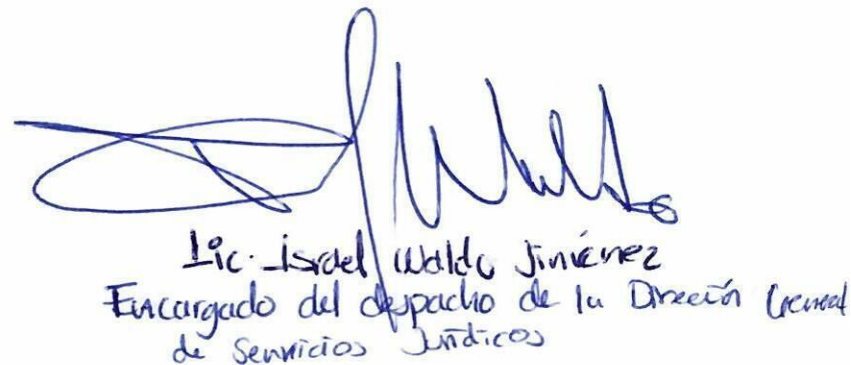 Lic. Israel Waldo Jiménez
Encargado del despacho de la Dirección General
de Servicios Jurídicos